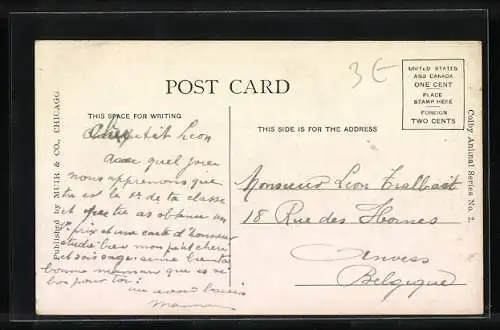 3 €
POST CARD
UNITED STATES
AND CANADA
ONE CENT
PLACE
STAMP HERE
FOREIGN
TWO CENTS
THIS SPACE FOR WRITING
THIS SIDE IS FOR THE ADDRESS
Published by MUIR & CO., CHICAGO
Colby Animal Series No. 2.
petit Leon
quel joie
nous apprenons que
tu est le 1er de ta classe
et que tu as obtenu un
1r prix et une carte d'honneur
étudie bien mon petit cheri
et sois sage
bonne maman que es si
bon pour toi!
baisers
Monsieur Leon
18 Rue des
Anvers
Belgique